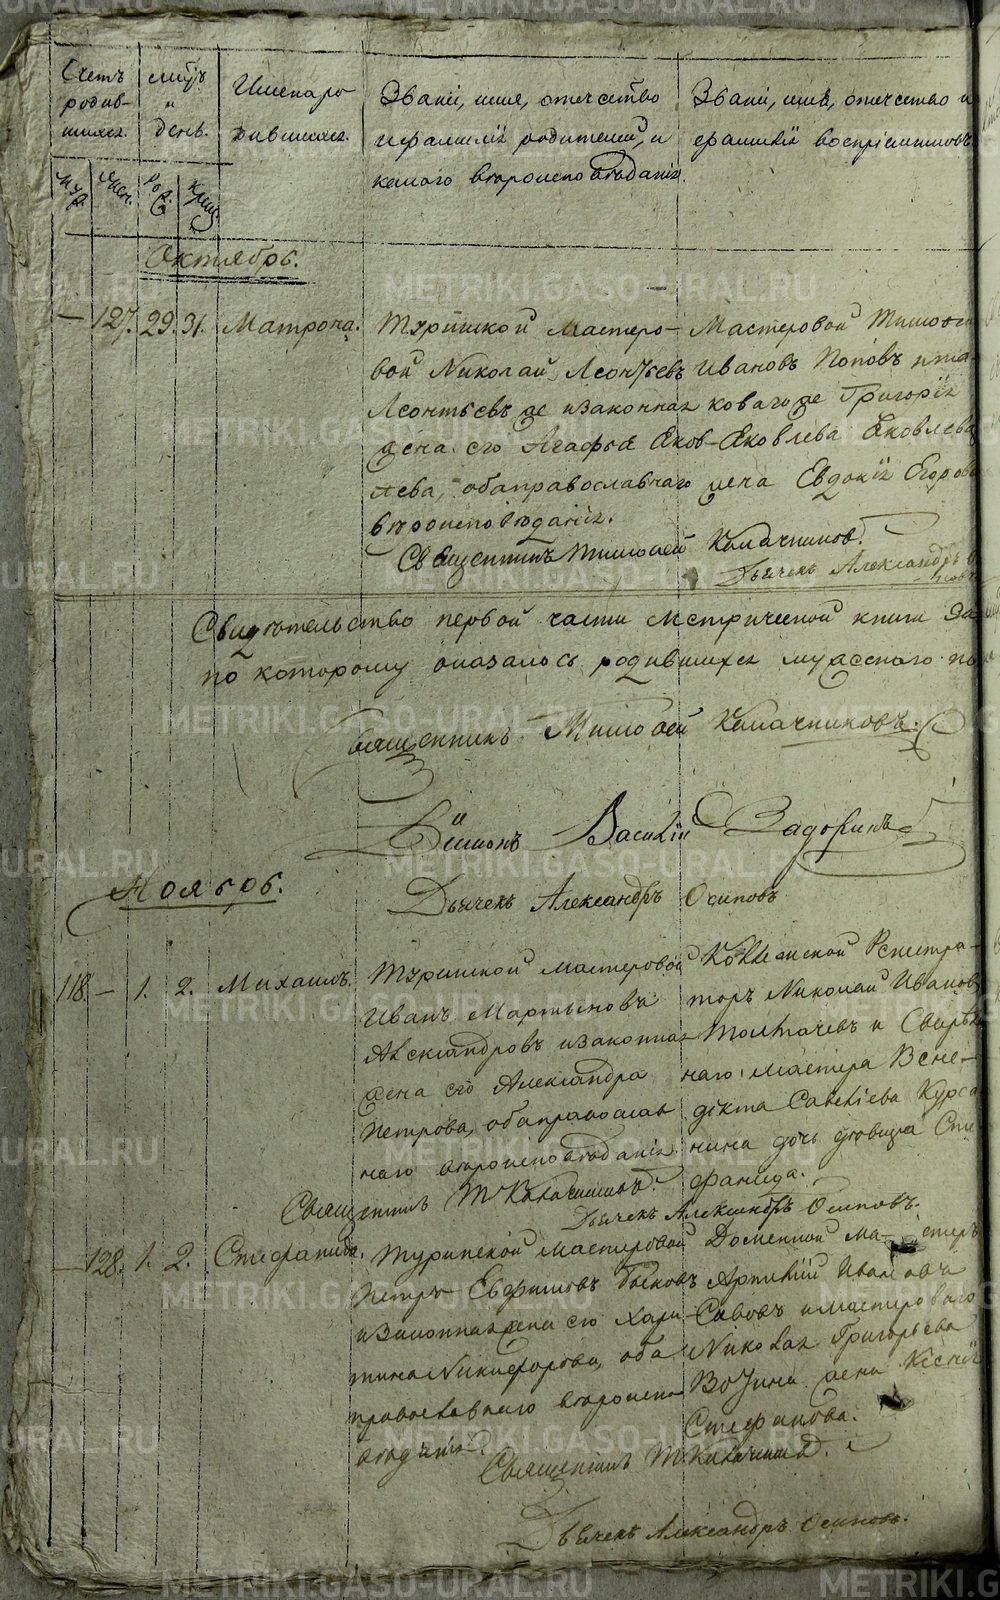 Счетъ родив-шихся.
мѣсяцъ и день.
Имена ро-дившихся.
Званіе, имя, отечество
и фамилія родителей, и
какого вѣроисповѣданія.
Званіе, имя, отечество и
фамилія воспріемниковъ.
Октябрь.
127. 29. 31. Матрона.
Туринской мастеро-
вой Николай Леонтьевъ
Леонтьевъ же и законная
жена его Агафья Яков-
лева, оба православнаго
вѣроисповѣданія.
Мастеровой Тимофей
Ивановъ Поповъ и ма-
Григорія
Яковлева Яковлева
жена Евдокія Егорова
Священникъ Тимофей Калачниковъ.
Дьячекъ Александръ
Свидѣтельство первой части метрической книги за
по которому оказалось родившихся мужескаго по
Священникъ Тимофей Калачниковъ.
Діаконъ Василій Задоринъ
Дьячекъ Александръ Осиповъ
Ноябрь.
118. – 1. 2. Михаилъ.
Туринской мастеровой
Иванъ Мартыновъ
Александровъ и законная
жена его Александра
Петрова, оба православ
наго вѣроисповѣданія.
Регистра-
торъ Николай Ивановъ
Толмачевъ и
наго мастера Вене-
дикта Савельева
нина дочь дѣвица Сте
фанида.
Священникъ Т Калачниковъ.
Дьячекъ Александръ Осиповъ.
– 128. 1. 2. Стефанида.
Туринской мастеровой
Петръ Евфимовъ Быковъ
и законная жена его Хари-
тина Никифорова, оба
православнаго вѣроиспо
вѣданія.
Доменной ма-стеръ
Артемій Ивановъ
Савовъ и мастероваго
Николая Григорьева
жена Ксенія
Стефанова.
Священникъ Т Калачниковъ.
Дьячекъ Александръ Осиповъ.
METRIKI.GASO-URAL.RU